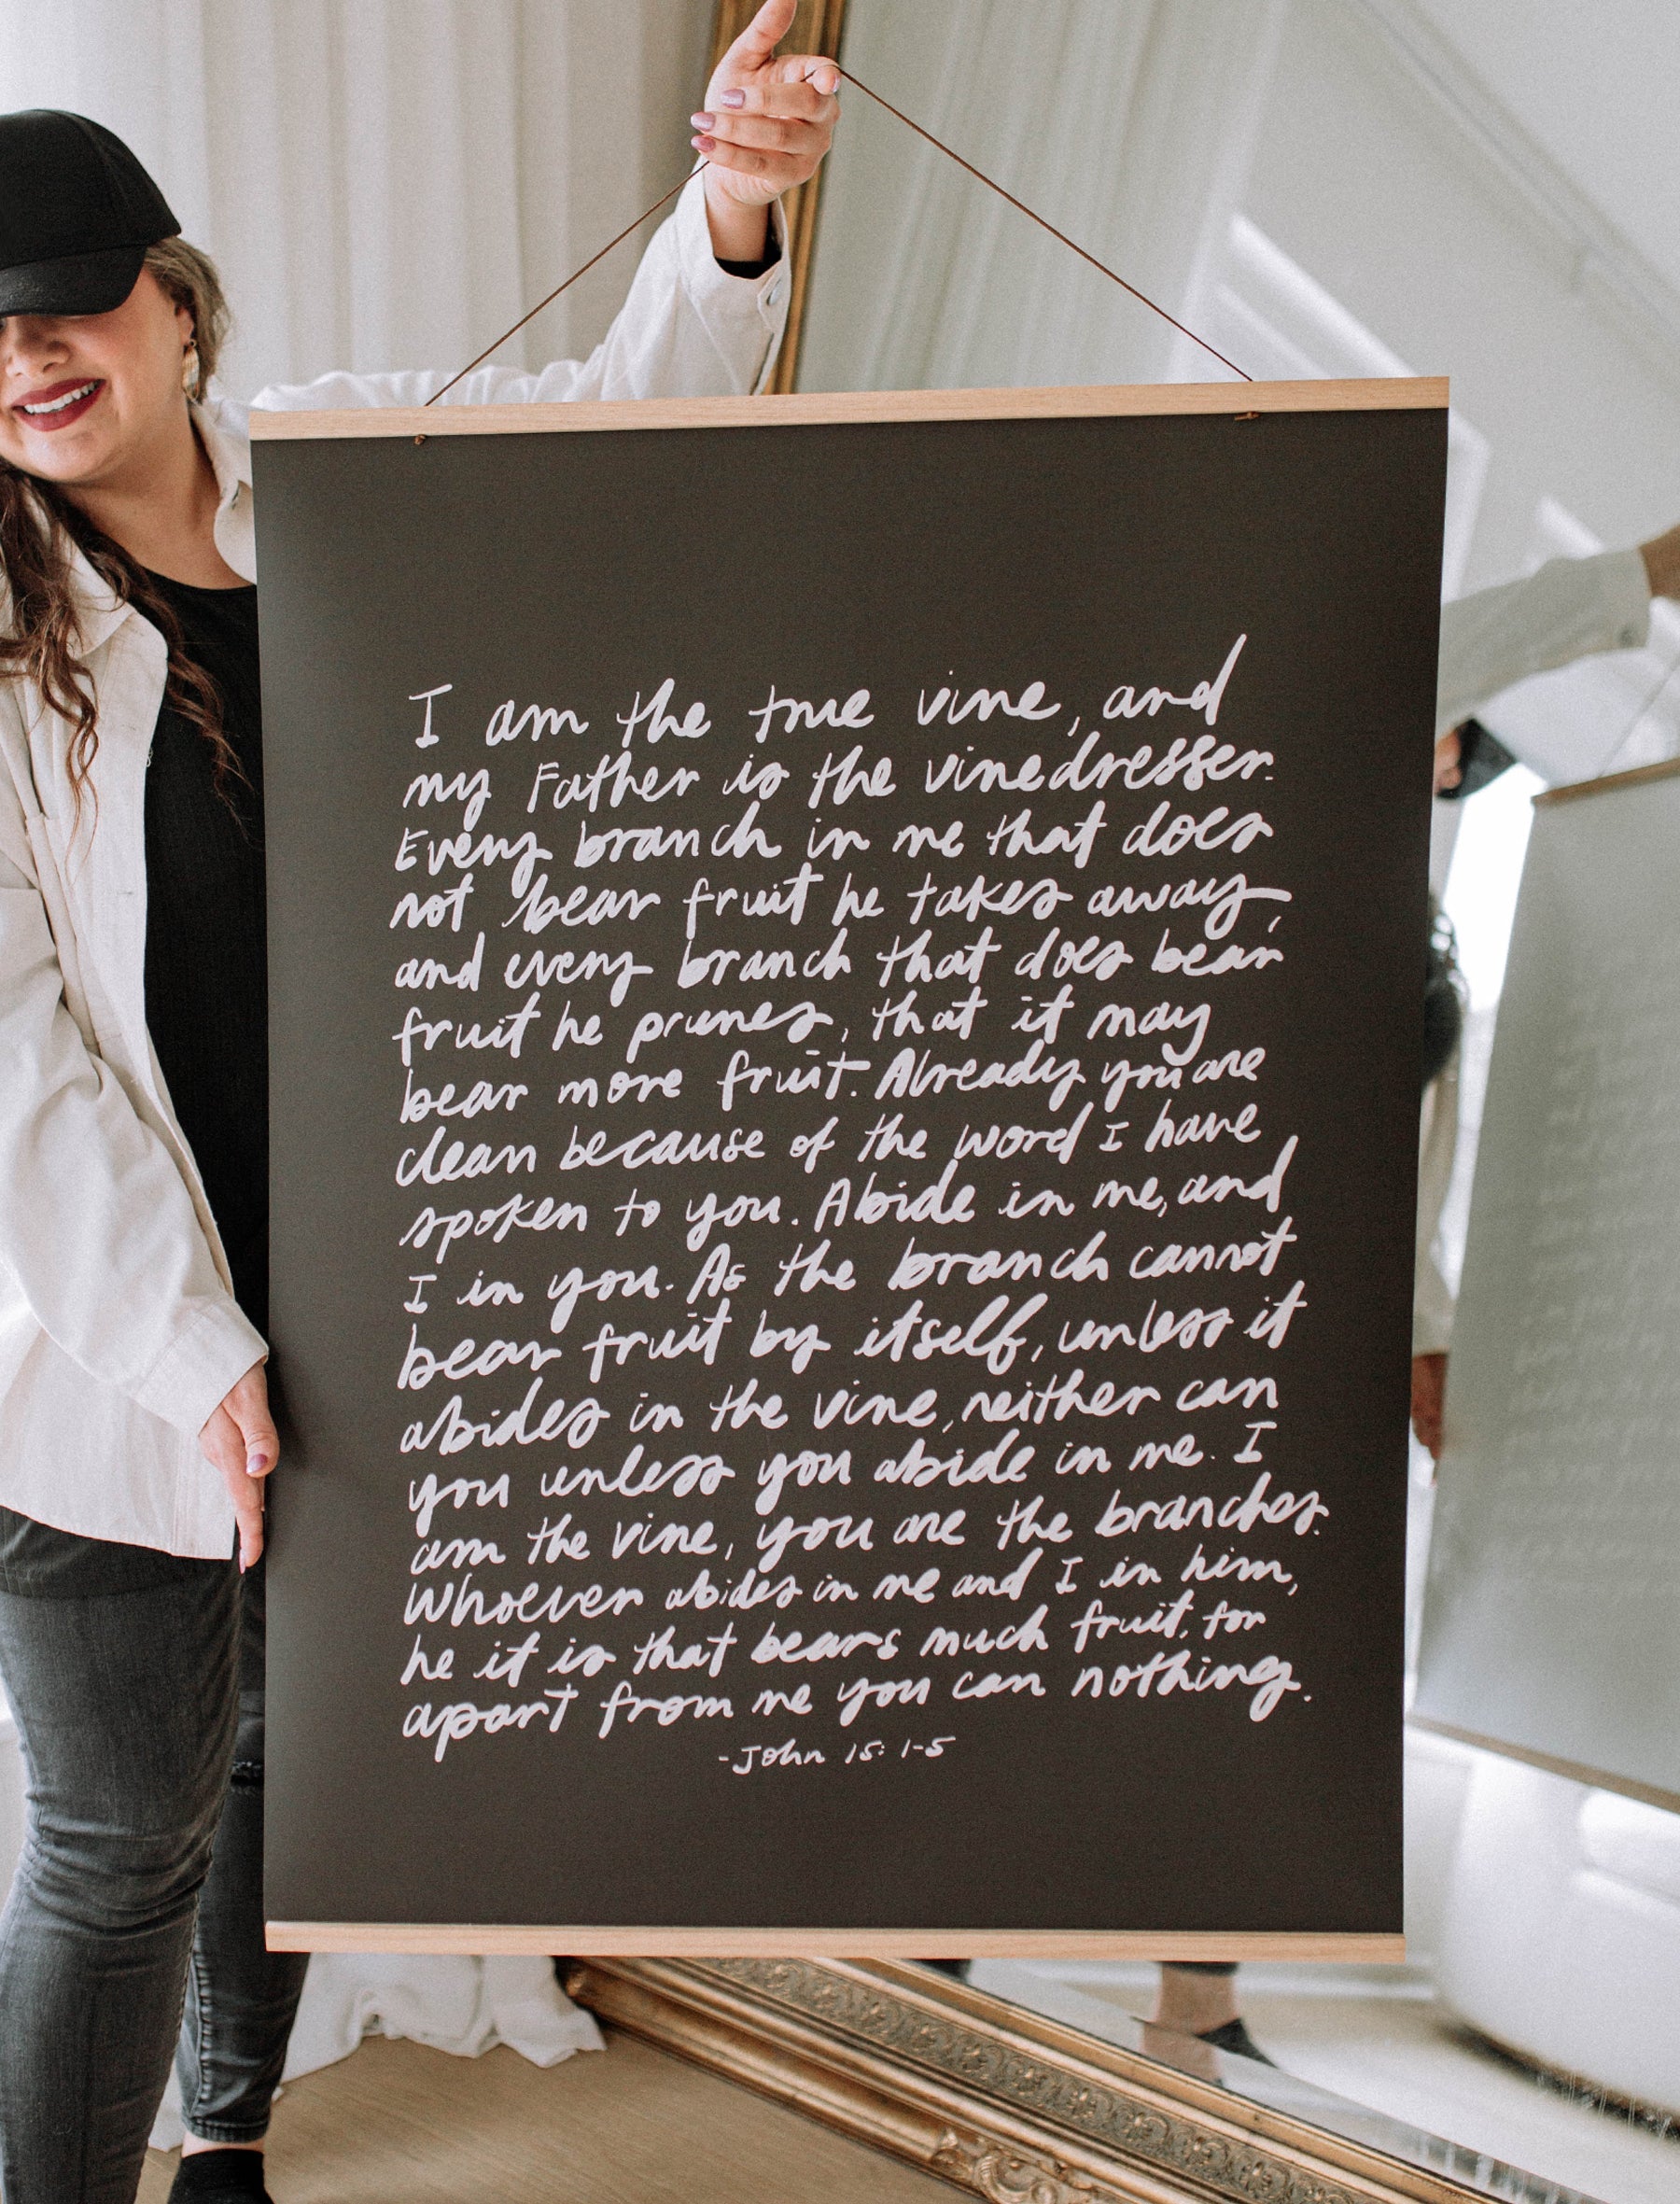 I am the true vine, and
my Father is the vinedresser.
Every branch in me that does
not bear fruit he takes away,
and every branch that does bear
fruit he prunes, that it may
bear more fruit. Already you are
clean because of the word I have
spoken to you. Abide in me, and
I in you. As the branch cannot
bear fruit by itself, unless it
abides in the vine, neither can
you unless you abide in me. I
am the vine, you are the branches.
Whoever abides in me and I in him,
he it is that bears much fruit, for
apart from me you can nothing.
-John 15:1-5